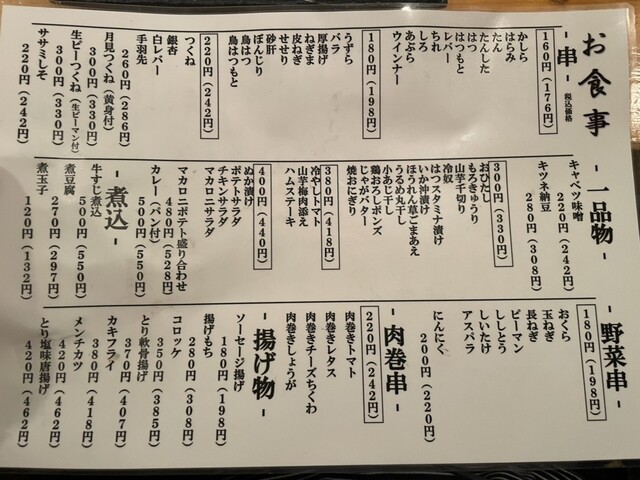 お食事
-串- 税込価格
160円(176円)
かしら
はらみ
たん
たんした
はつ
はつもと
レバー
ちれ
しろ
あぶら
ウインナー
180円(198円)
うずら
バラ
厚揚げ
ねぎま
皮ねぎ
せせり
砂肝
ぼんじり
鳥はつ
鳥はつもと
220円(242円)
つくね
銀杏
白レバー
手羽先
260円(286円)
月見つくね(黄身付)
300円(330円)
生ピーつくね(生ピーマン付)
300円(330円)
ササミしそ
220円(242円)
-一品物-
キャベツ味噌
220円(242円)
キツネ納豆
280円(308円)
300円(330円)
おひたし
もろきゅうり
山芋千切り
冷奴
はつスタミナ漬け
いか沖漬け
ほうれん草ごまあえ
うるめ丸干し
小あじ干し
鶏おろしポンズ
じゃがバター
焼おにぎり
380円(418円)
冷やしトマト
山芋梅肉添え
ハムステーキ
400円(440円)
ぬか漬け
ポテトサラダ
チャンサラダ
マカロニサラダ
マカロニポテト盛り合わせ
480円(528円)
カレー(パン付)
500円(550円)
-煮込-
牛すじ煮込
500円(550円)
煮豆腐
270円(297円)
煮玉子
120円(132円)
-野菜串-
180円(198円)
おくら
玉ねぎ
長ねぎ
ピーマン
ししとう
しいたけ
アスパラ
にんにく
200円(220円)
-肉巻串-
220円(242円)
肉巻きトマト
肉巻きレタス
肉巻きチーズちくわ
肉巻きしょうが
-揚げ物-
ソーセージ揚げ
180円(198円)
揚げもち
280円(308円)
コロッケ
350円(385円)
とり軟骨揚げ
370円(407円)
カキフライ
380円(418円)
メンチカツ
420円(462円)
とり塩味唐揚げ
420円(462円)